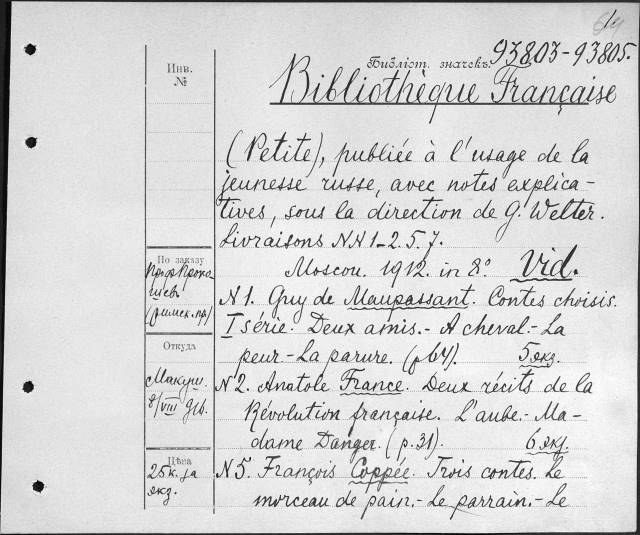 Библіот. значекъ. 93803-93805.
Инв.
№
Bibliothèque Française
(Petite), publiée à l'usage de la
jeunesse russe, avec notes explica-
tives, sous la direction de G. Welter.
Livraisons NN 1-2. 5. 7.
Moscou. 1912. in 8°. Vid.
По заказу
(римск. пр.)
N 1. Guy de Maupassant. Contes choisis.
I série. Deux amis.- A cheval.- La
peur.- La parure. (p 64). 5 экз.
Откуда
Макуш.
8/VIII 916.
N 2. Anatole France. Deux récits de la
Révolution française. L'aube.- Ma-
dame Danger. (p. 31). 6 экз.
Цѣна
25 к. за
экз.
N 5. François Coppée. Trois contes. Le
morceau de pain.- Le parrain.- Le